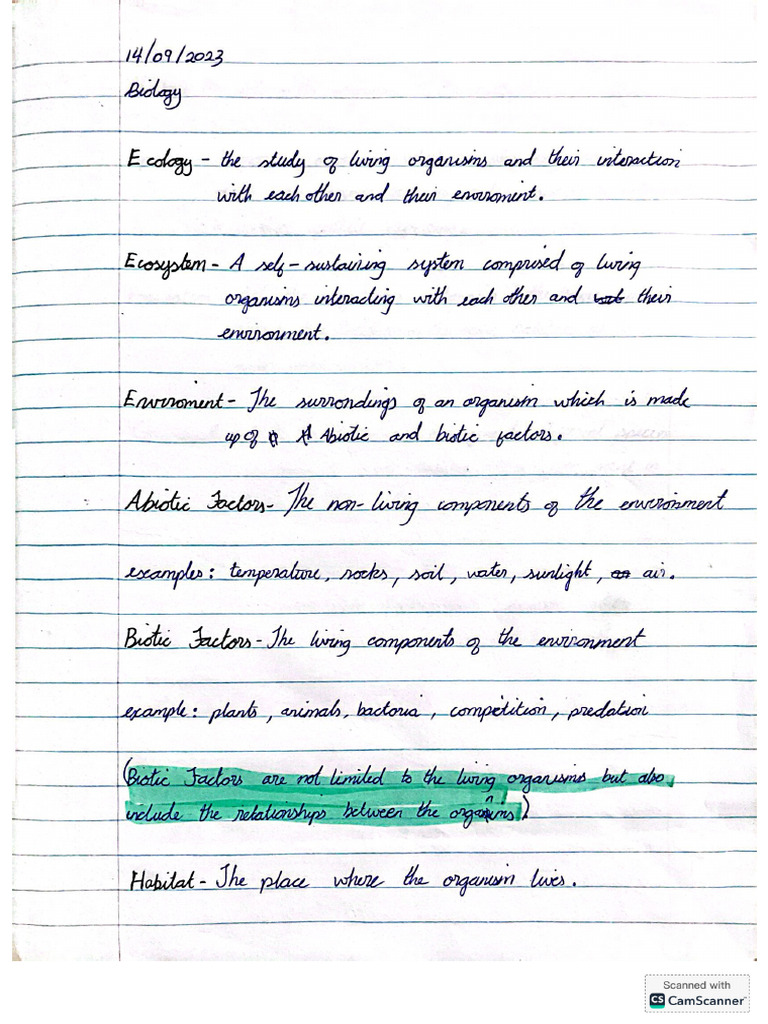 14/09/2023
Biology
Ecology - the study of living organisms and their interaction
with each other and their enviroment.
Ecosystem - A self-sustaining system comprised of living
organisms interacting with each other and their
environment.
Enviroment - The surrondings of an organism which is made
up of Abiotic and biotic factors.
Abiotic Factors - The non-living components of the environment
examples: temperature, rocks, soil, water, sunlight, air.
Biotic Factors - The living components of the environment
example: plants, animals, bacteria, competition, predation
(Biotic Factors are not limited to the living organisms but also
include the relationships between the organims)
Habitat - The place where the organism lives.
Scanned with
CS CamScanner